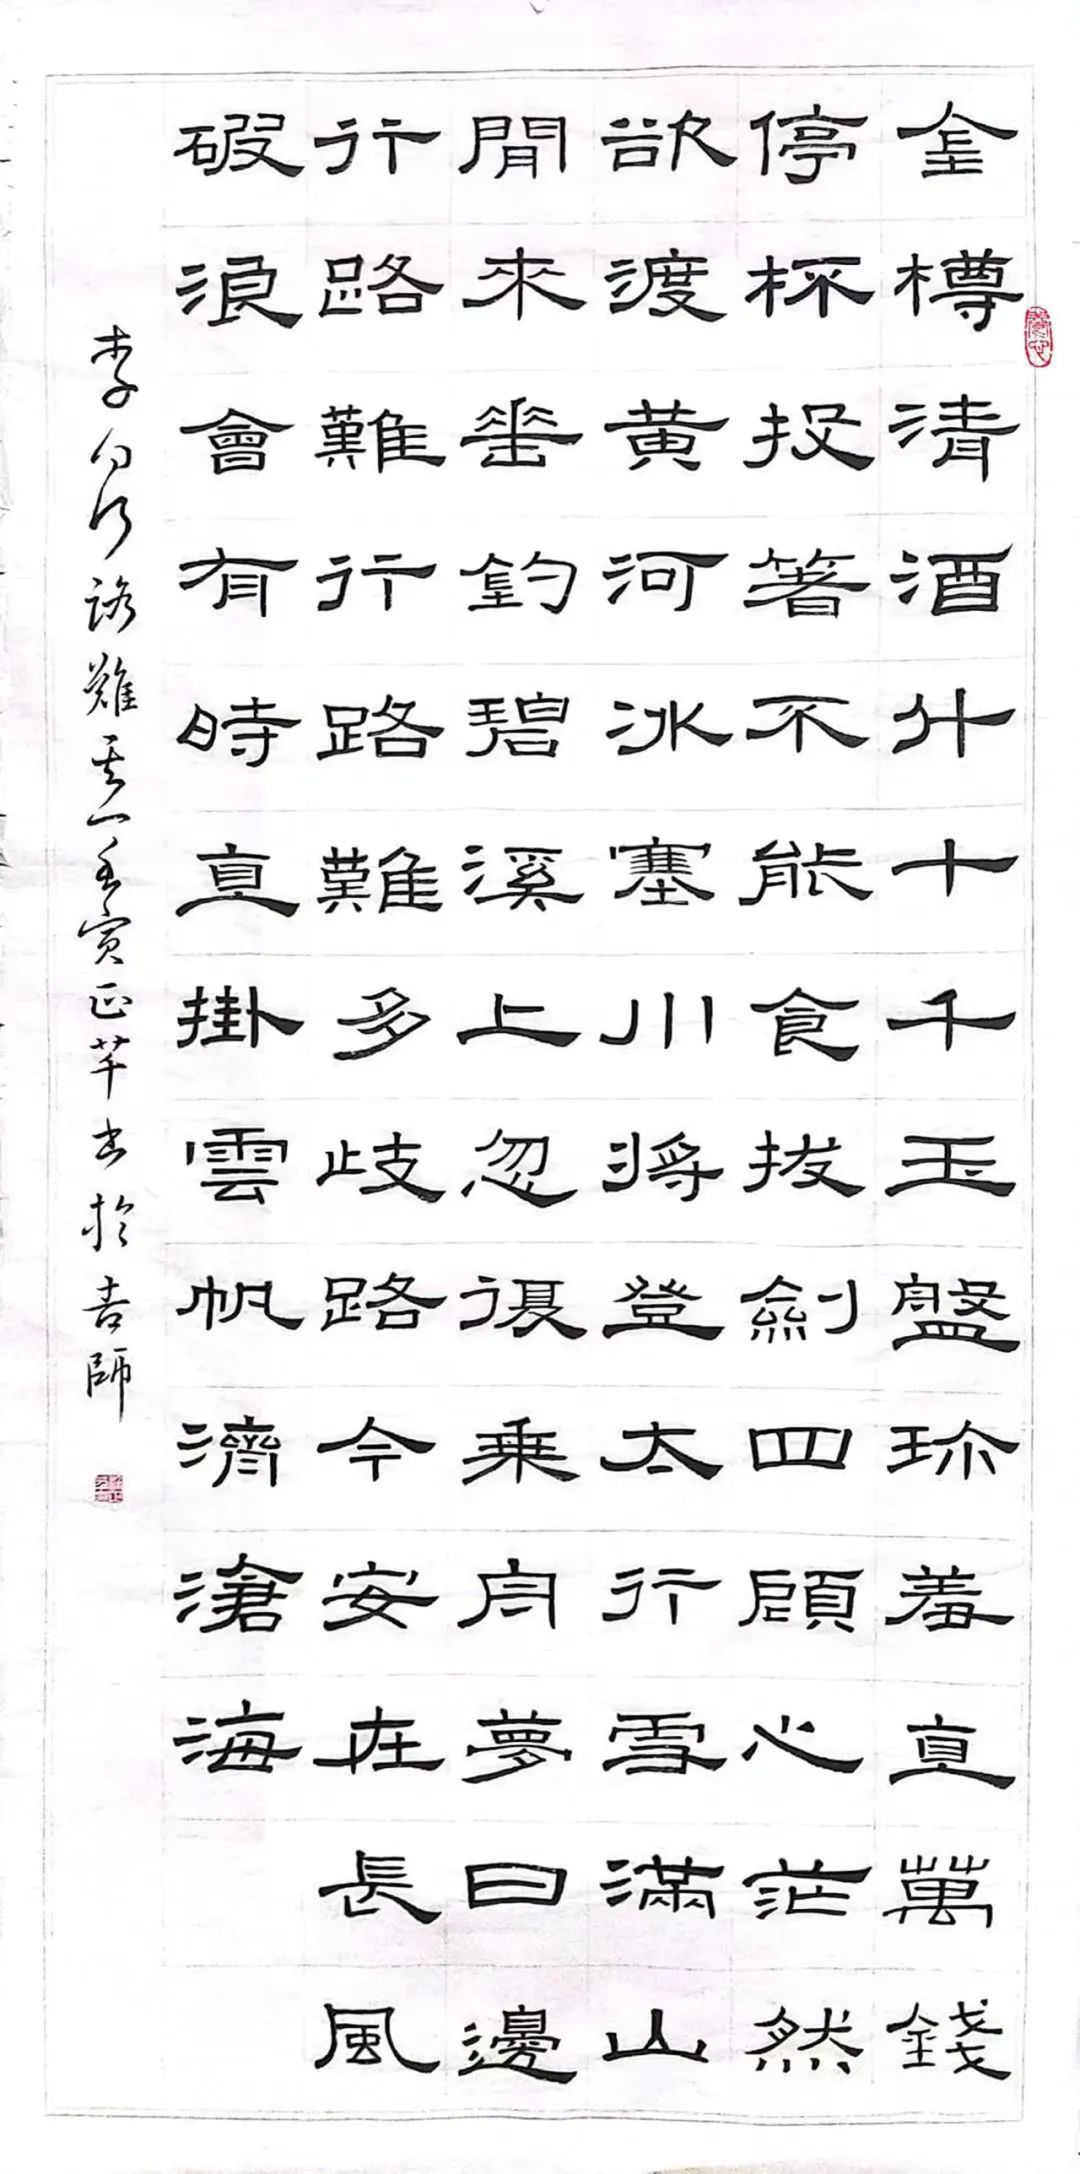 金樽清酒斗十千玉盤珍羞直萬錢
停杯投箸不能食拔劍四顧心茫然
欲渡黄河冰塞川將登太行雪滿山
閒來垂釣碧溪上忽復乘舟夢日邊
行路難行路難多歧路今安在長風
破浪會有時直掛雲帆濟滄海
李白行路難其一壬寅正芊書於吉師